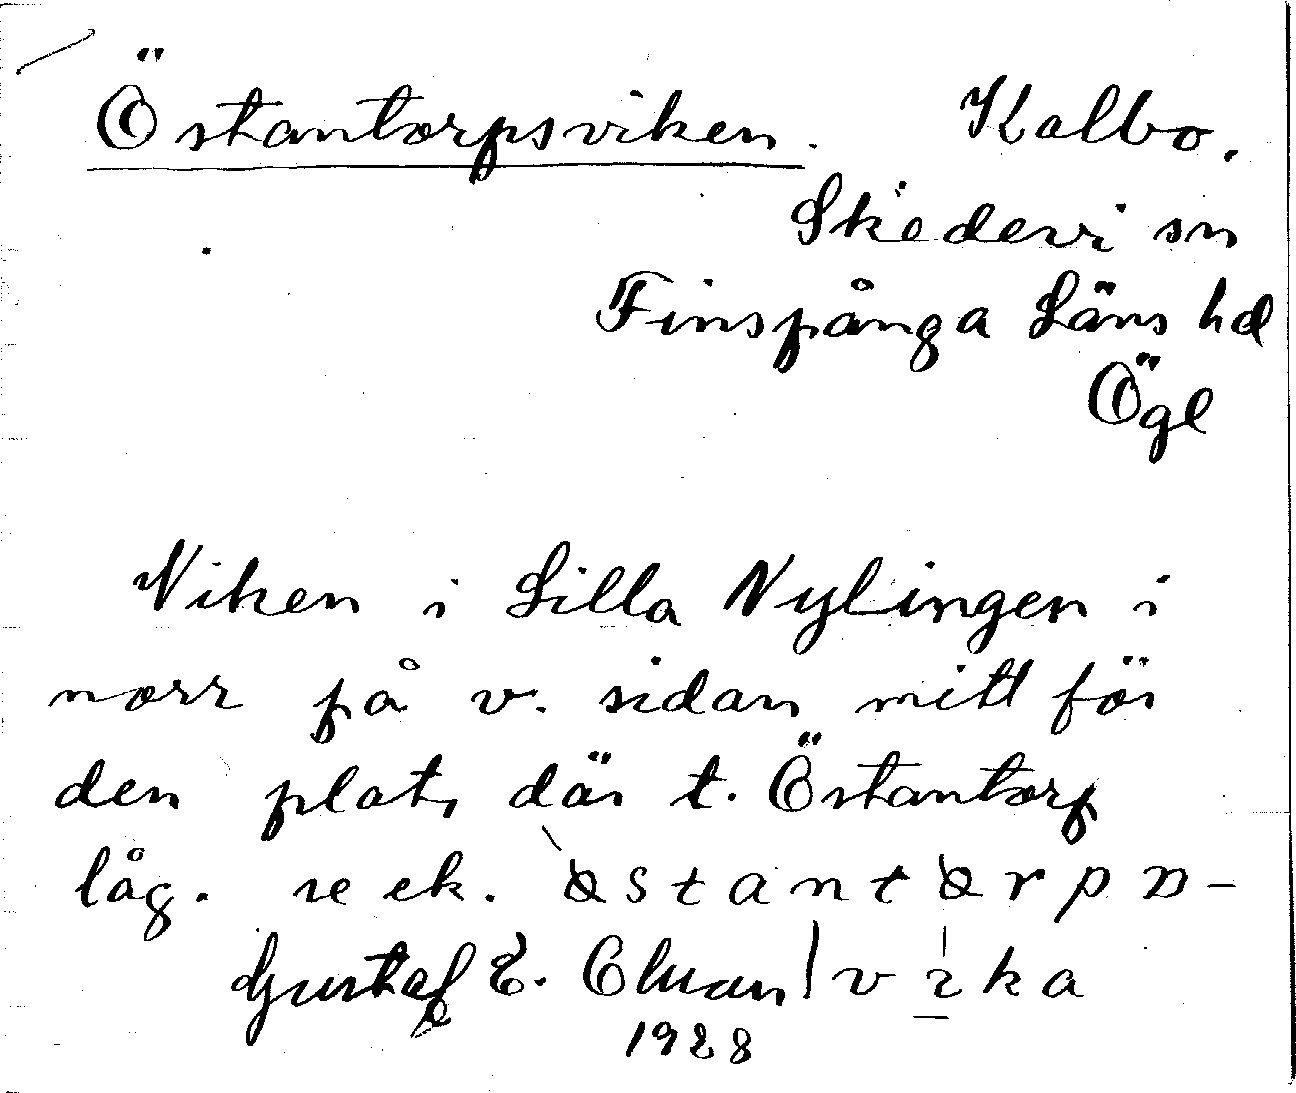 Östantorpsviken. Kalbo.
Skedevi sn
Finspånga Läns hd
Ögl
Viken i Lilla Nylingen i
norr på v. sidan mitt för
den plats, där t. Östantorp
låg. se ek.
Gustaf E. vika
1928